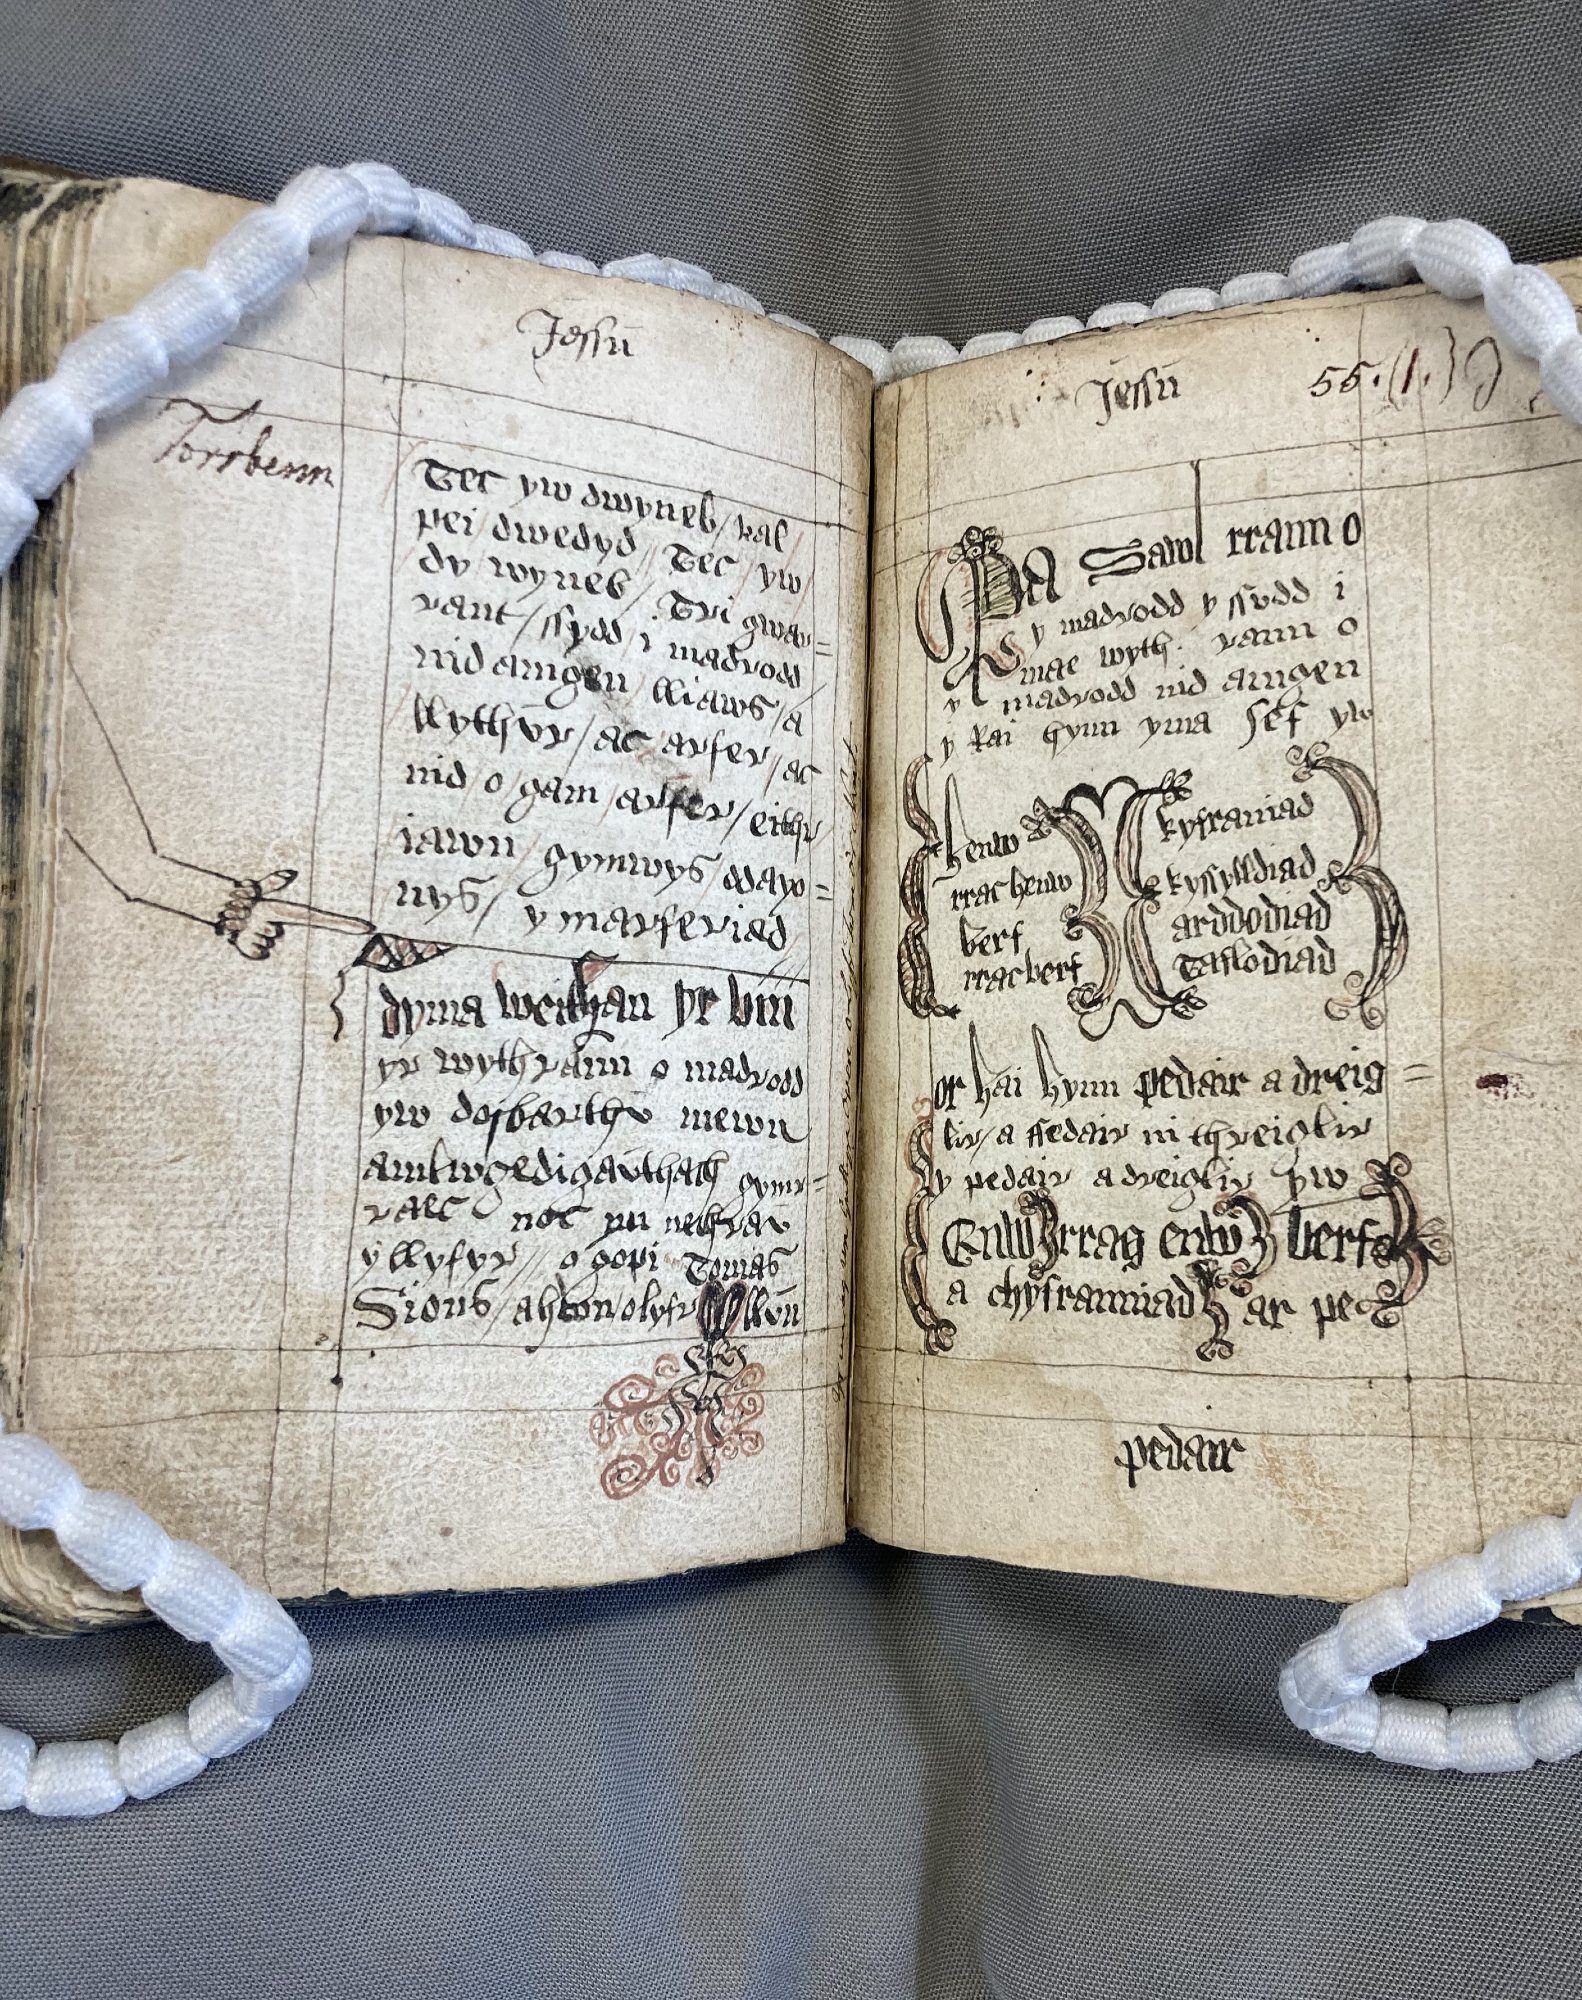 Jessū
Torrbenn
Tec yw dwyneb / val
pei / dwedyd // Tec yw
dy wyneb / Tri gwa=
rant / ssydd i madrodd
nid amgen lliaws / a
llythyr / ac arfer / ac
nid o / gam arfer / eithr
iawn gymwys ddayo=
nys / y marferiad
dyma weithan yr viii
yr wythrann o madrodd
yw dosbarthv mewn
amlwgedigaythach gymr=
raec noc yn nechrav
y llyfyr // o gopi Tomas
Sions / ahwn / olyfr llvn
Jessū
55. (1.)
Pa Sawl rrann o
y madrodd y ssydd i
mae wyth. rann o
y madrodd nid amgen
y Rai hynn yma Sef yw
henw
rrachenw
berf
rracberf
kyfraniad
kyssylldiad
arddodiad
Taflodiad
or hai hynn pedair a dreig=
lir / a ffedair ni threiglir
y pedair a dreiglir yw
Enw rrag enw berf
a chyfranniad ar pe
pedair